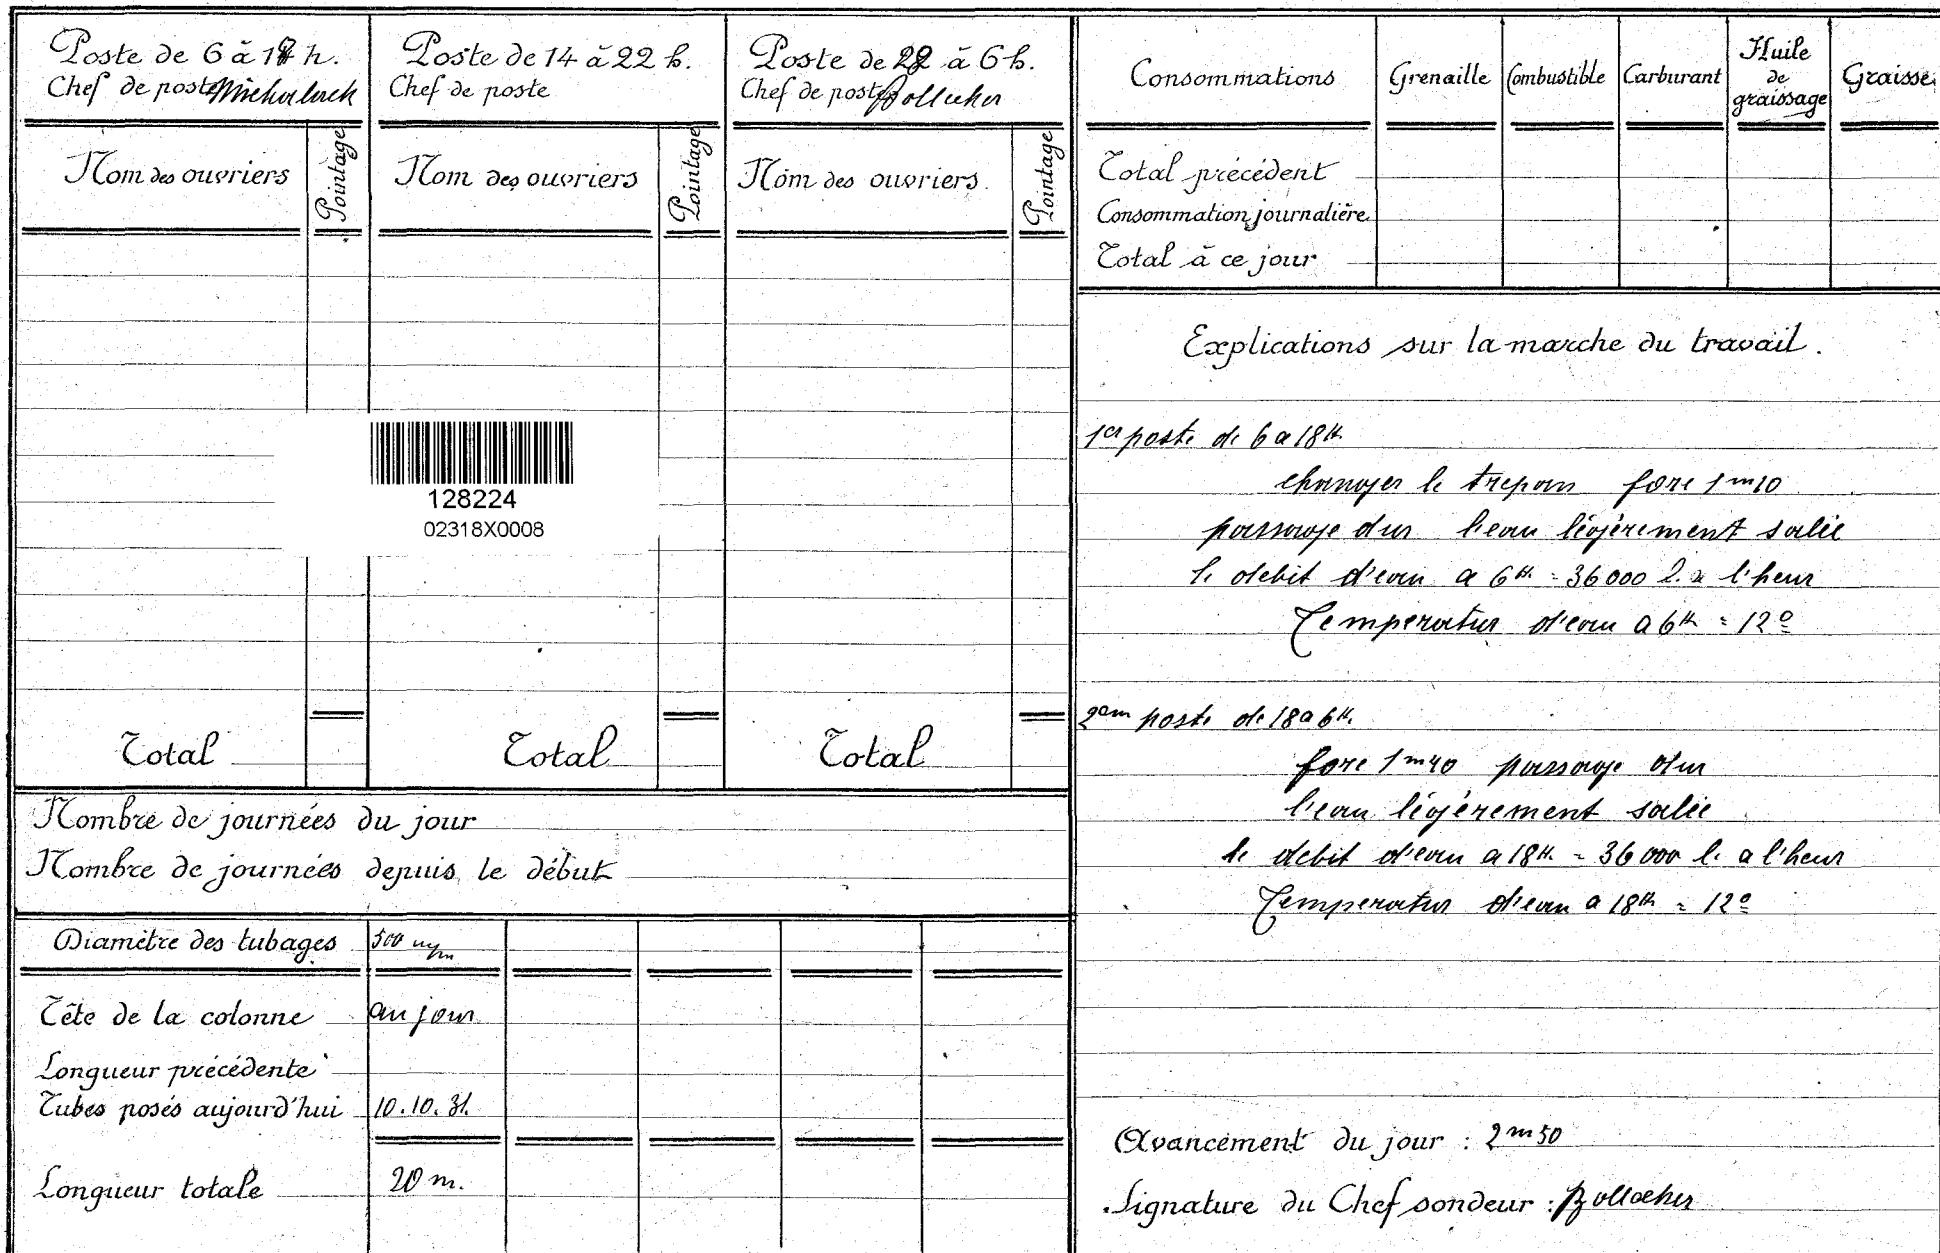 Poste de 6 à 18 h.
Chef de poste
Nom des ouvriers
Pointage
Total
Poste de 14 à 22 h.
Chef de poste
Nom des ouvriers
Pointage
Total
Poste de 22 à 6 h.
Chef de poste
Nom des ouvriers.
Pointage
Total
128224
02318X0008
Nombre de journées du jour
Nombre de journées depuis le début
Diamètre des tubages 500 m/m
Tête de la colonne au jour
Longueur précédente
Tubes posés aujourd'hui 10.10.31.
Longueur totale 20 m.
Consommations Grenaille Combustible Carburant Huile de graissage Graisse
Total précédent
Consommation journalière
Total à ce jour
Explications sur la marche du travail.
1er poste de 6 a 18H
changer le trepan fore 1m10
passage dur l'eau légèrement salée
le debit d'eau a 6H = 36000 l. a l'heur
Temperatur d'eau a 6H = 12°
2em poste de 18 a 6H.
fore 1m40 passage dur
l'eau légèrement salée
le debit d'eau a 18H. = 36000 l. a l'heur
Temperatur d'eau a 18H = 12°
Avancement du jour : 2m50
Signature du Chef sondeur :